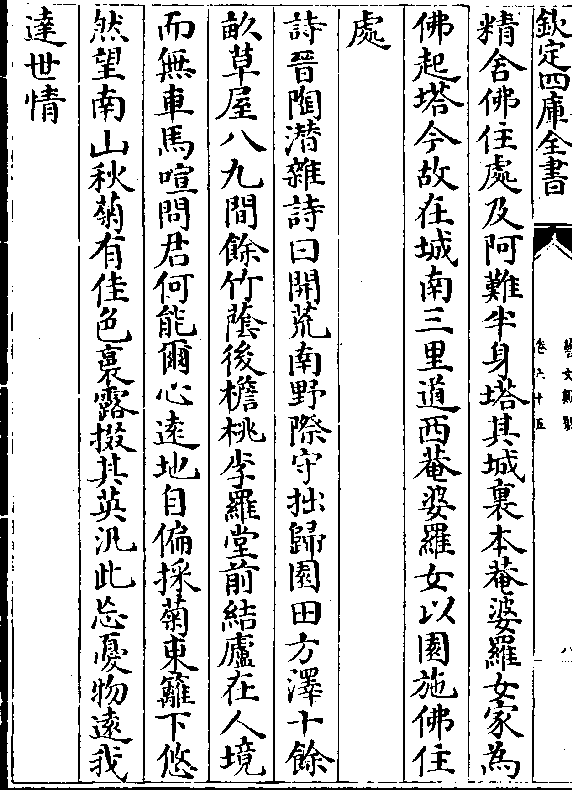 欽定四庫全書
藝文類聚
卷六十五
八
精舍佛住處及阿難半身塔其城裏本菴婆羅女家為
佛起塔今故在城南三里道西菴婆羅女以園施佛住
處
詩晉陶潛雜詩曰開荒南野際守拙歸園田方澤十餘
畝草屋八九間餘竹蔭後檐桃李羅堂前結廬在人境
而無車馬喧問君何能爾心遠地自偏採菊東籬下悠
然望南山秋菊有佳色裛露掇其英汎此忘憂物遠我
達世情